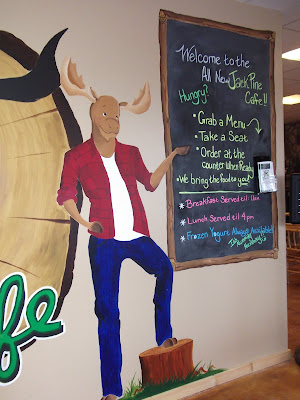 Welcome to the
All New Jack Pine
Cafe!!
Hungry?
• Grab a Menu
• Take a Seat
• Order at the
counter When Ready
• We bring the food to you!
* Breakfast Served til 11am
* Lunch Served til 4pm
* Frozen Yogurt Always Available!
fe